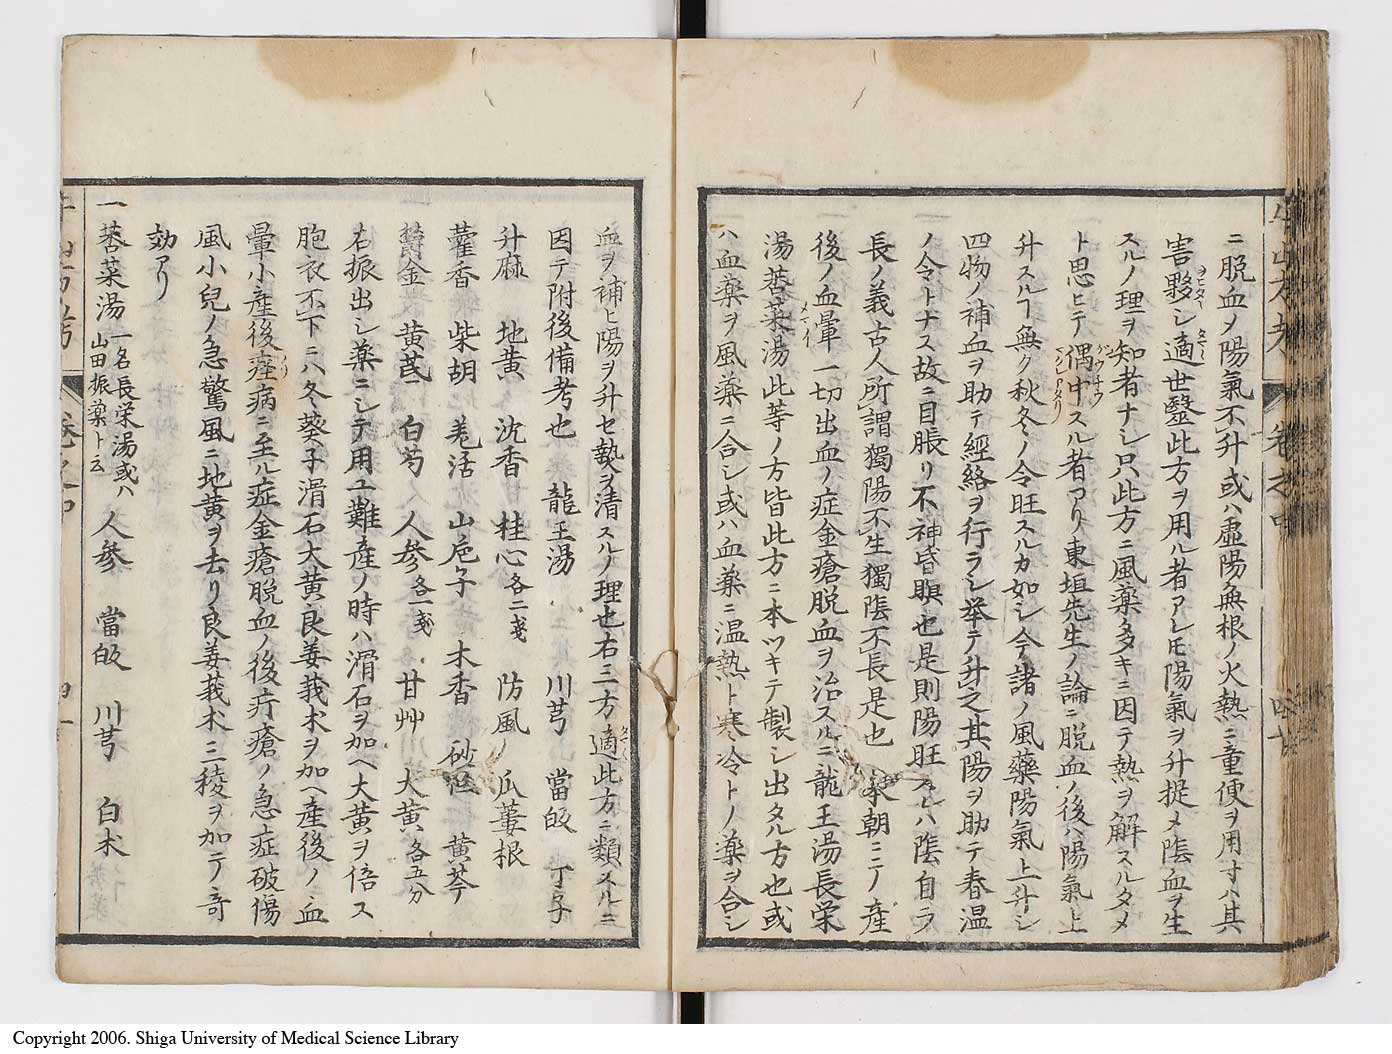 ニ脱血メ陽氣不升或ハ虚陽無根ノ火熱ニ童便ヲ用寸ハ其
害夥シ適世醫此方ヲ用ル者アレ𪜈陽氣ヲ升提メ陰血ヲ生
スルノ理ヲ知者ナシ只此方ニ風薬多キニ因テ熱ヲ解スルタメ
ト思ヒテ偶中スル者アリ東垣先生ノ論ニ脱血ノ後ハ陽氣上
升スルヿ無ク秋冬ノ令旺スルカ如シ今諸ノ風藥陽氣上升シ
四物ノ補血ヲ助テ經絡ヲ行ラシ挙テ升之其陽ヲ助テ春温
ノ令トナス故ニ目脹リ不神昏瞑也是則陽旺スレハ陰自ラ
長ノ義古人所謂獨陽不生獨陰不長是也 本朝ニテノ産
後ノ血暈一切出血ノ症金瘡脱血ヲ治スルニ龍王湯長栄
湯莟菜湯此等ノ方皆此方ニ本ツキテ製シ出タル方也或
ハ血薬ヲ風薬ニ合シ或ハ血薬ニ温熱ト寒冷トノ薬ヲ合シ
血ヲ補ヒ陽ヲ升セ熱ヲ清スルノ理也右三方適此方ニ類スルニ
因テ附後備考也 龍王湯 川芎 當皈 丁子
升麻 地黄 沈香 桂心各二戔 防風 瓜蔞根
藿香 柴胡 羌活 山巵子 木香 砂 黄芩
欝金 黄芪 白芍 人参各一戔 甘艸 大黄各五分
右振出シ薬ニシテ用ユ難産ノ時ハ滑石ヲ加ヘ大黄ヲ倍ス
胞衣不下ニハ冬葵子滑石大黄良姜莪朮ヲ加ヘ産後ノ血
暈小産後痙病ニ至ル症金瘡脱血ノ後疔瘡ノ急症破傷
風小兒ノ急驚風ニ地黄ヲ去リ良姜莪朮三稜ヲ加テ奇
効アリ
一莟菜湯 一名長栄湯或ハ山田振薬ト云 人参 當皈 川芎 白朮
Copyright 2006. Shiga University of Medical Science Library